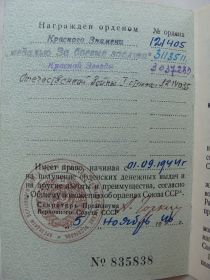 Награжден орденом № ордена
Красного Знамени 121405
медалью За боевые заслуги 3113511
Красной Звезды
Отечественной Войны
Имеет право, начиная 01.09.1944г
на получение орденских денежных выдач и
на другие льготы и преимущества, согласно
Общему положению об орденах Союза ССР.
Секретарь Президиума
Верховного Совета СССР
5 ноября
№ 835838